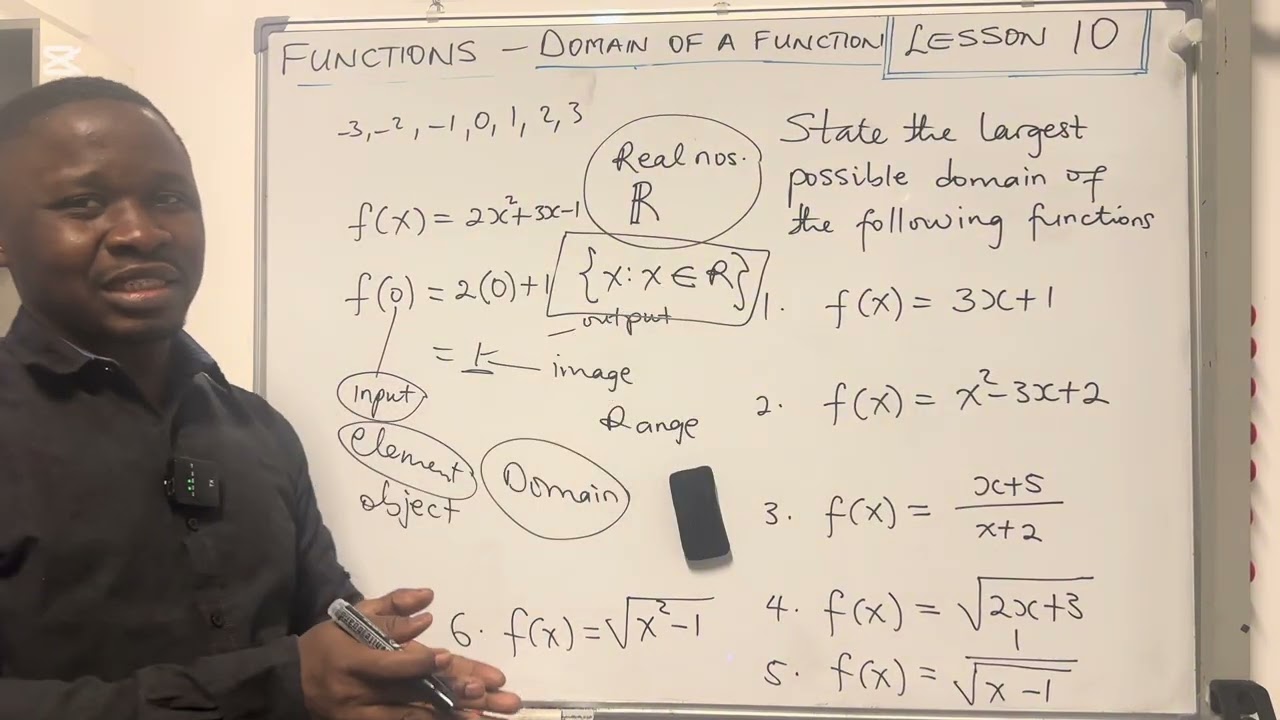 FUNCTIONS – DOMAIN OF A FUNCTION
LESSON 10
-3, -2, -1, 0, 1, 2, 3
Real nos.
ℝ
f(x) = 2x²+3x-1
f(0) = 2(0)+1
{x: x ∈ ℝ}
output
= 1
image
Range
Input
element
object
Domain
State the largest
possible domain of
the following functions
1. f(x) = 3x+1
2. f(x) = x²-3x+2
3. f(x) = (x+5)/(x+2)
4. f(x) = √(2x+3)
5. f(x) = 1/√(x-1)
6. f(x) = √(x²-1)